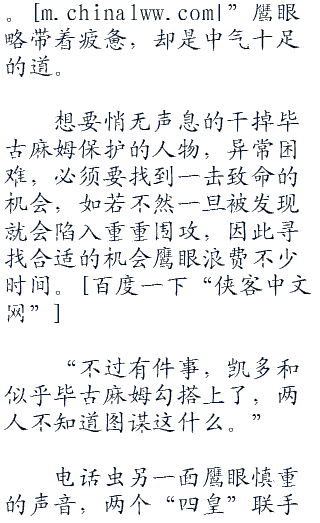 。[m.chinalww.com|”鹰眼
略带着疲惫，却是中气十足
的道。
想要悄无声息的干掉毕
古麻姆保护的人物，异常困
难，必须要找到一击致命的
机会，如若不然一旦被发现
就会陷入重重围攻，因此寻
找合适的机会鹰眼浪费不少
时间。[百度一下“侠客中文
网”]
“不过有件事，凯多和
似乎毕古麻姆勾搭上了，两
人不知道图谋这什么。”
电话虫另一面鹰眼慎重
的声音，两个“四皇”联手